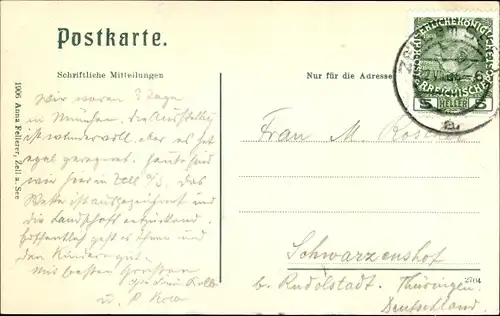 Postkarte.
Schriftliche Mitteilungen
Nur für die Adresse
KAISERLICHE KÖNIGLICHE
ÖSTERREICHISCHE
5 HELLER 5
1906 Anna Federer, Zell a. See
Wir waren 3 Tage
in München, die Ausstellung
ist wundervoll. aber es hat
egal geregnet. Heute sind
wir hier in Zell a/S. das
Wetter ist ausgezeichnet und
die Landschaft entzückend.
Hoffentlich geht es Ihnen und
den Kindern gut.
Mit besten Grüßen
Frau M.
Schwarzenshof
b. Rudolstadt. Thüringen.
Deutschland.
2704